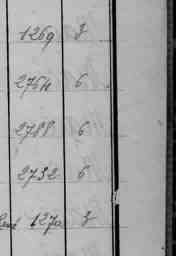 1269 3
2754 6
2788 6
2732 6
1270 3